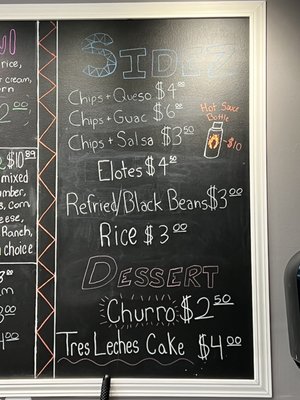 rice,
cream,
2.00
$10.89
mixed
corn
Ranch,
choice
SIDEZ
Chips + Queso $4.00
Chips + Guac $6.00
Chips + Salsa $3.50
Hot Sauce
Bottle
$10
Elotes $4.50
Refried/Black Beans $3.00
Rice $3.00
DESSERT
Churro $2.50
Tres Leches Cake $4.00